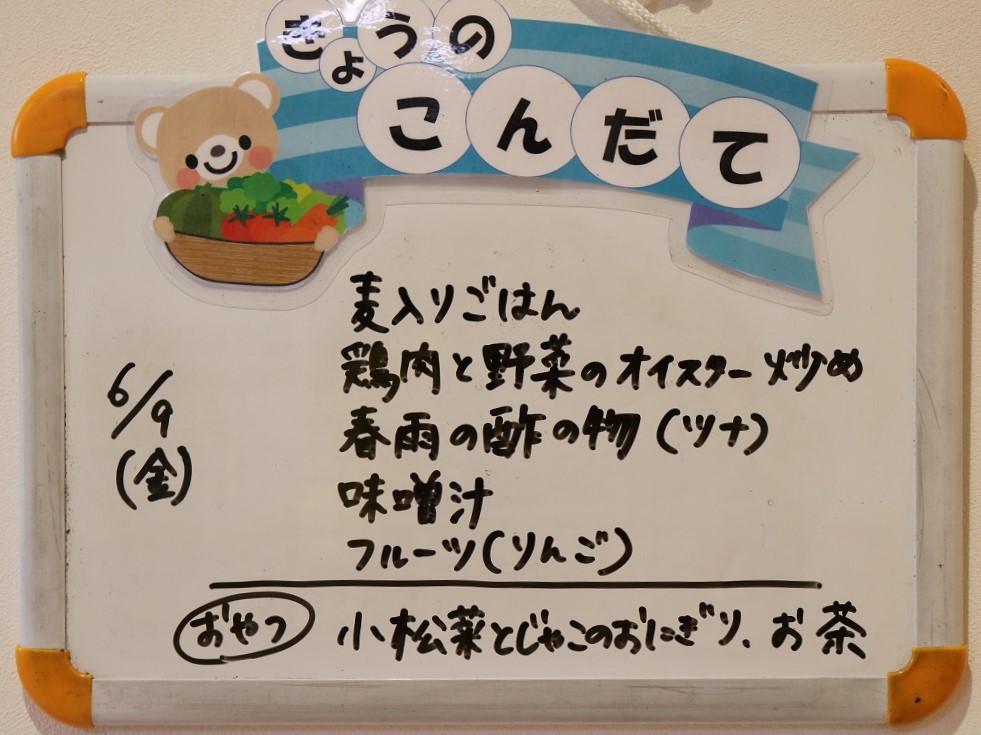 きょうの
こんだて
麦入りごはん
鶏肉と野菜のオイスター炒め
6/9
(金)
春雨の酢の物(ツナ)
味噌汁
フルーツ(りんご)
おやつ 小松菜とじゃこのおにぎり、お茶